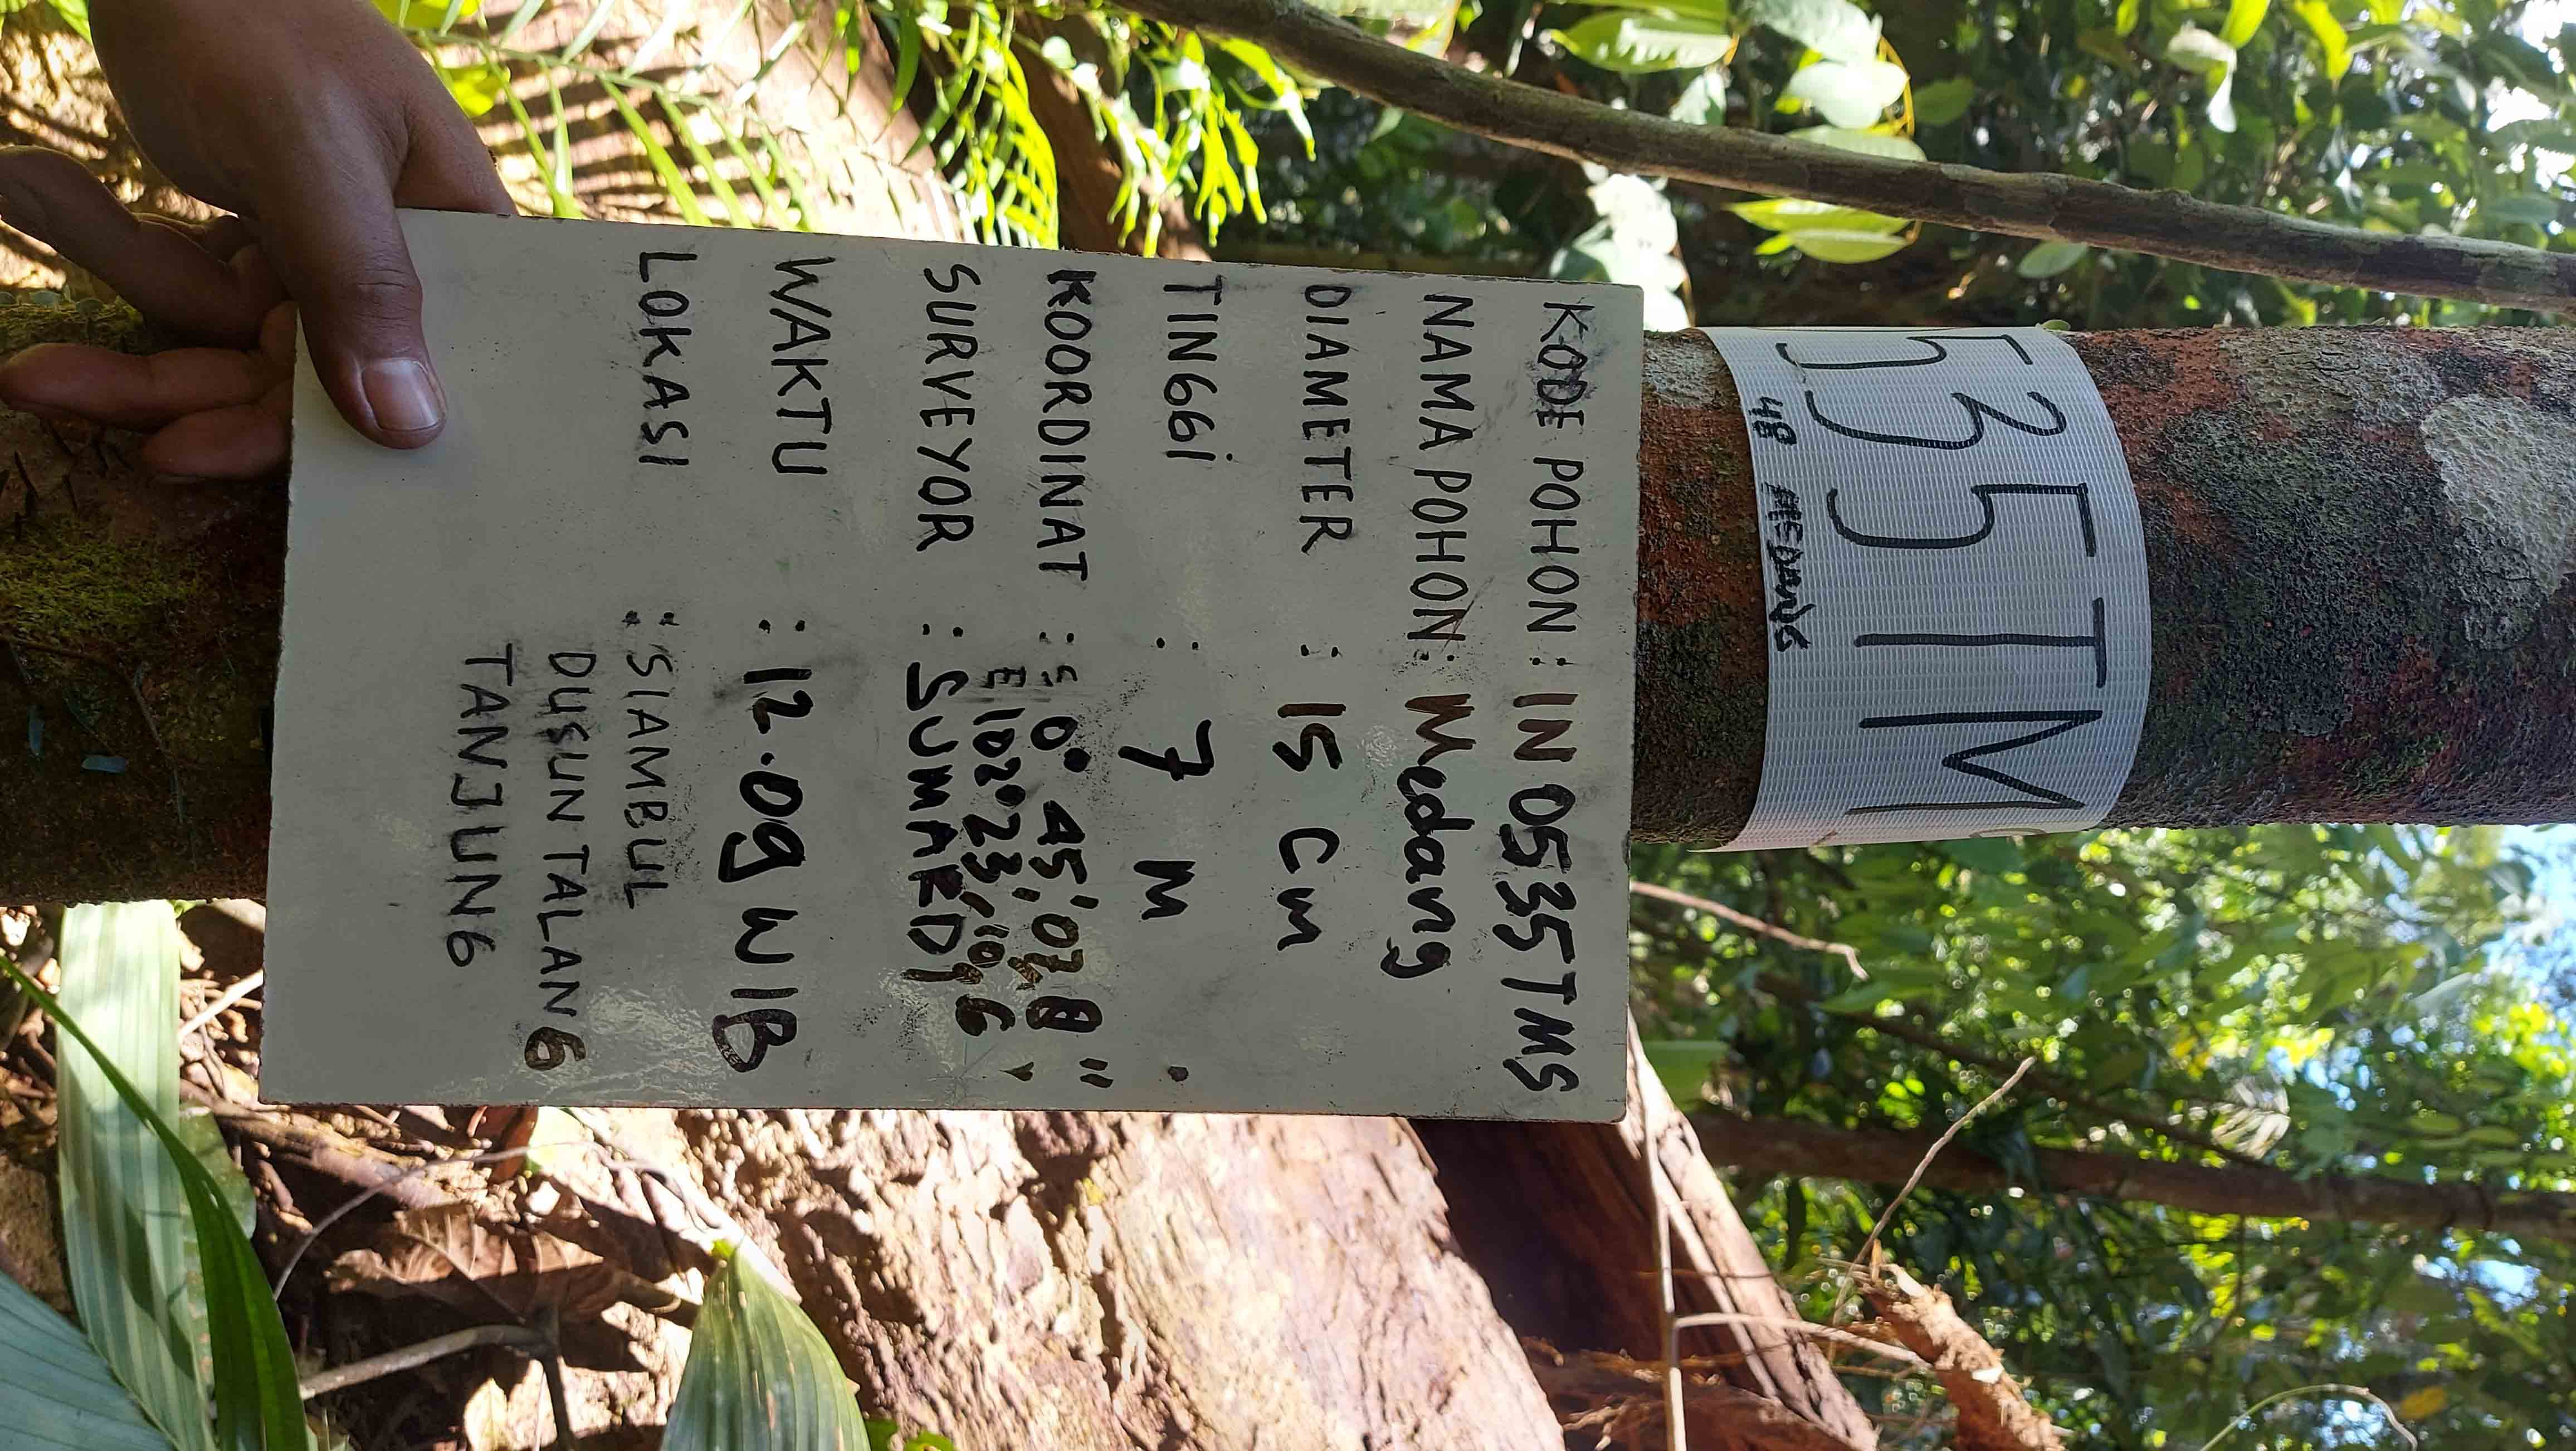 535TM
48 MEDANG
KODE POHON : IN 0535TMS
NAMA POHON : Medang
DIAMETER : 15 cm
TINGGi : 7 M
KOORDINAT : S 0° 45',07,8"
E 102° 23,'10,6
SURVEYOR : SUMAEDI
WAKTU : 12.09 WIB
LOKASI : SIAMBUL
DUSUN TALANG
TANJUNG